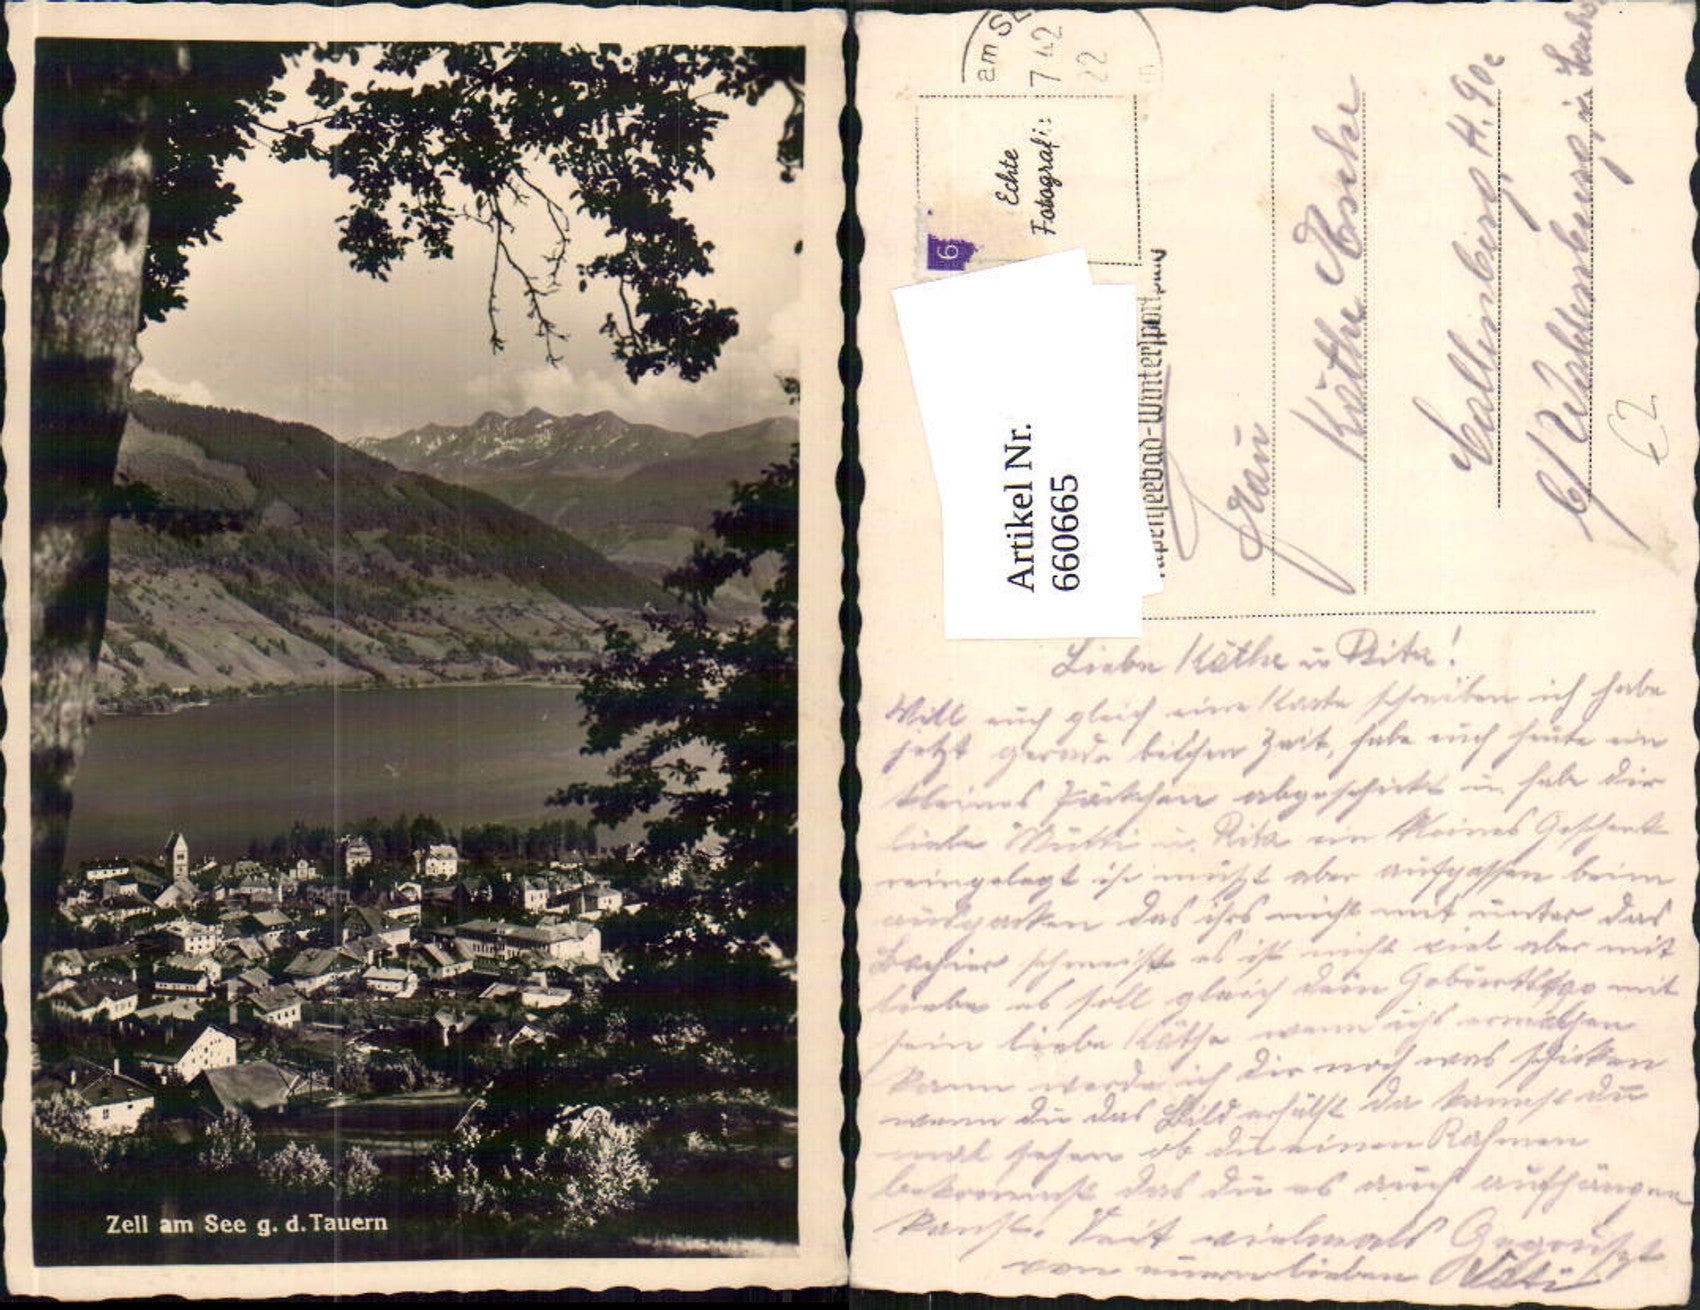 Zell am See g. d. Tauern
am SE
7 42
22
Echte
Fotografi:
6
Artikel Nr.
660665
Alpenseebad-Wintersport
Frau
Käthe
Callenberg H. 90c
b/ Waldenburg i. Sachs.
€2
Liebe Käthe u Rita!
Will euch gleich eine Karte schreiben ich habe
jetzt gerade bischen Zeit, habe euch heute ein
kleines Päckchen abgeschickt u. habe dir
liebe Mutti u. Rita ein kleines Geschenk
reingelegt ihr müßt aber aufpassen beim
auspacken das ihrs nicht mit unter das
schmeißt es ist nicht viel aber mit
liebe es soll gleich dein Geburtstag mit
sein liebe Käthe wenn ichs erwischen
kann werde ich dir noch was schicken
wenn du das Bild erhälst da kannst du
mal sehen ob du einen Rahmen
bekommst das du es auch aufhängen
kanst. Seit vielmals Gegrüßt
von euern lieben Vati